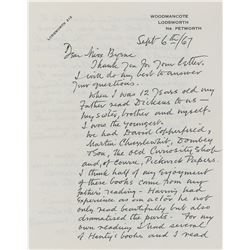 WOODMANCOTE
LODSWORTH
Nr PETWORTH
LODSWORTH 212
Sept 6th/67
Dear Miss Byrne
Thank you for your letter.
I will do my best to answer
your questions.
When I was 12 years old my
Father read Dickens to us —
my sister, brother and myself.
I was the youngest.
We had David Copperfield,
Martin Chuzzlewit, Dombey
& Son, The Old Curiosity Shop
and, of course, Pickwick Papers.
I think half of my enjoyment
of these books came from my
Father's reading — Having had
experience as an actor he not
only read beautifully but also
dramatised the parts. For my
own reading I had several
of Henty's books and I read